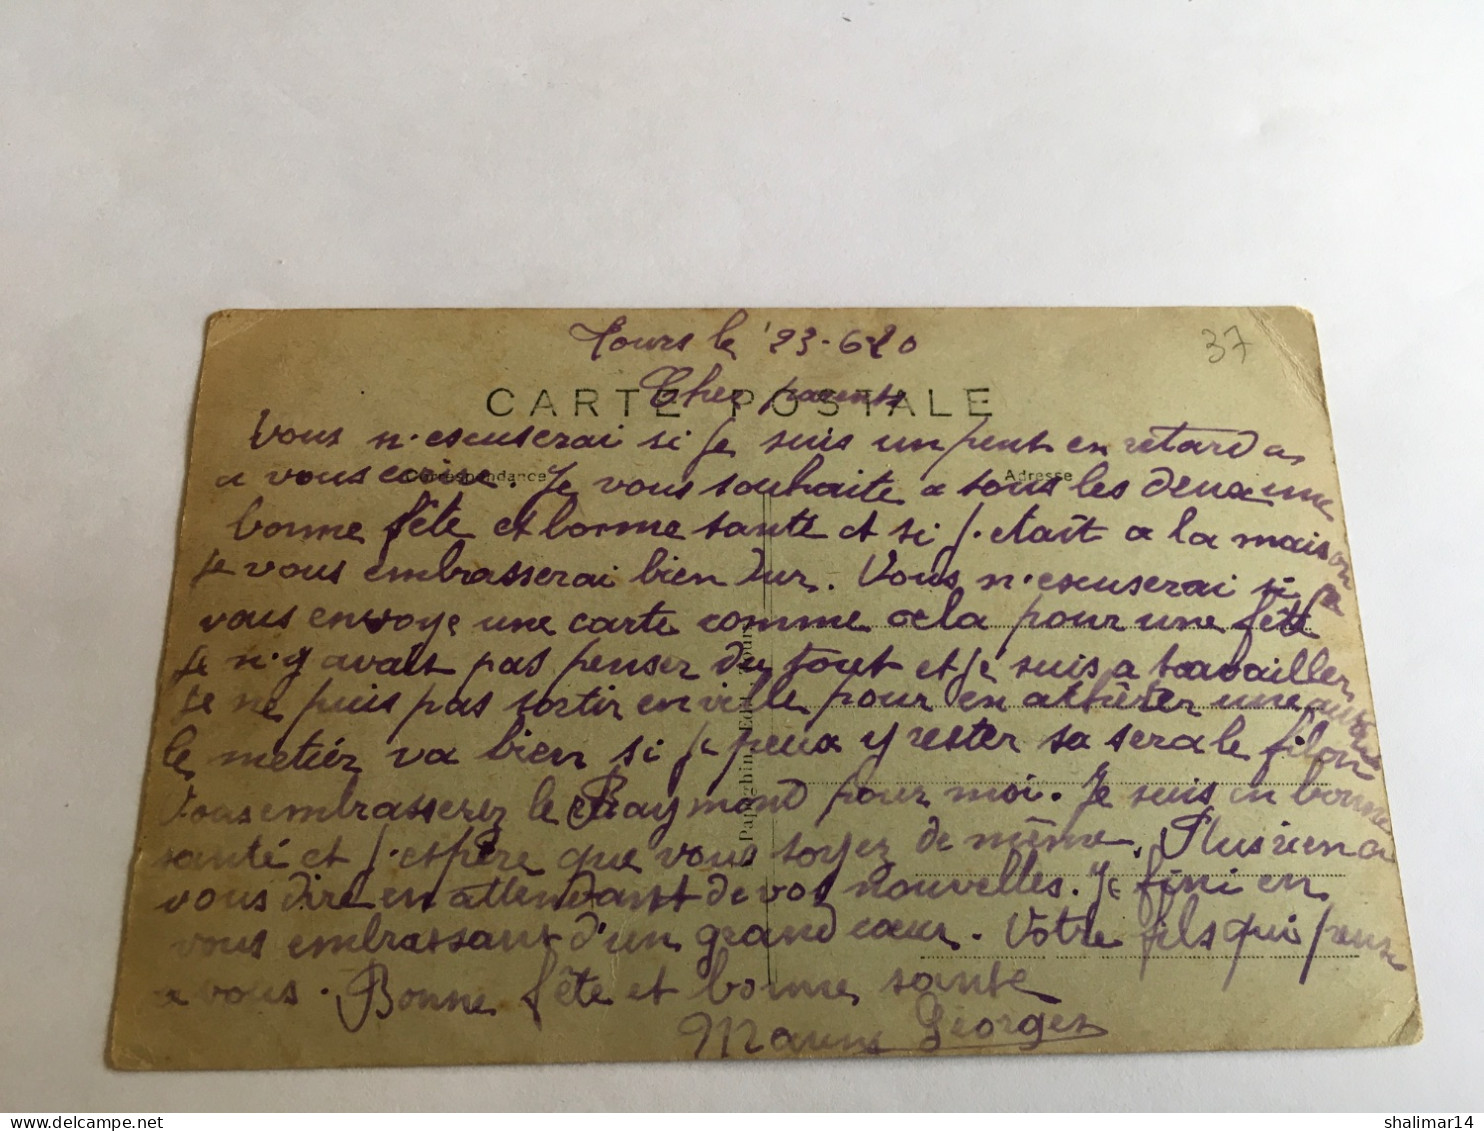 Tours le 23-6-20
37
CARTE POSTALE
Cher parents
Vous n'escuserai si je suis un peut en retard a
a vous ecrire. Je vous souhaite a tous les deux une
Correspondance
Adresse
bonne fête et bonne santé et si j'etait a la maison
je vous embrasserai bien dur. Vous n'escuserai si je
vous envoye une carte comme cela pour une fête
je n'y avait pas penser du tout et je suis a travailler
je ne puis pas sortir en ville pour en achêter une autre
le metiér va bien si je peux y rester sa sera le filon
Vous embrasserez le Raymond pour moi. Je suis en bonne
santé et j'espère que vous soyez de même. Plus rien a
vous dire en attendant de vos nouvelles. Je fini en
vous embrassant d'un grand cœur. Votre fils qui pense
a vous. Bonne fête et bonne sante
Georges
Papeghin, Edit. Tours
shalimar14